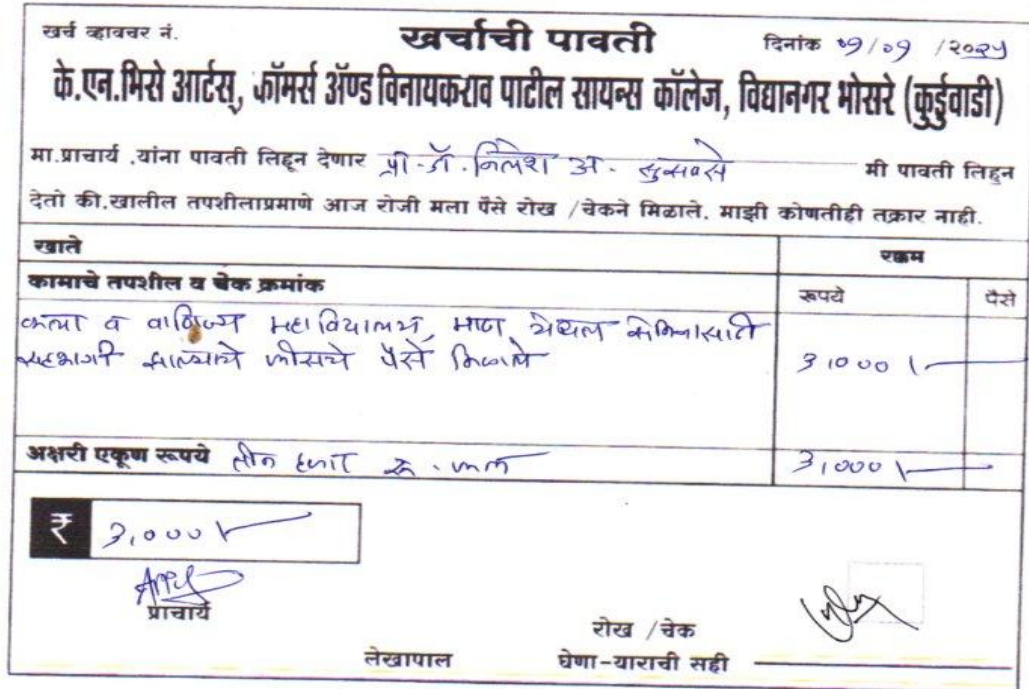 खर्च व्हावचर नं. खर्चाची पावती दिनांक ०१/०१ /२०२५
के.एन.भिसे आर्टस्, कॉमर्स ॲण्ड विनायकराव पाटील सायन्स कॉलेज, विद्यानगर भोसरे (कुर्डुवाडी)
मा.प्राचार्य .यांना पावती लिहून देणार प्रा. डॉ. निलेश अ. सुरवसे मी पावती लिहुन
देतो की.खालील तपशीलाप्रमाणे आज रोजी मला पैसे रोख /चेकने मिळाले. माझी कोणतीही तक्रार नाही.
खाते रक्कम
कामाचे तपशील व चेक क्रमांक रूपये पैसे
कला व वाणिज्य महाविद्यालय, माढा येथील सेमिनारसाठी
सहभागी झाल्याचे फीसचे पैसे मिळाले 3,000/-
अक्षरी एकूण रूपये तीन हजार रु. फक्त 3,000/-
₹ 3,000/-
प्राचार्य
लेखापाल
रोख /चेक
घेणा-याराची सही